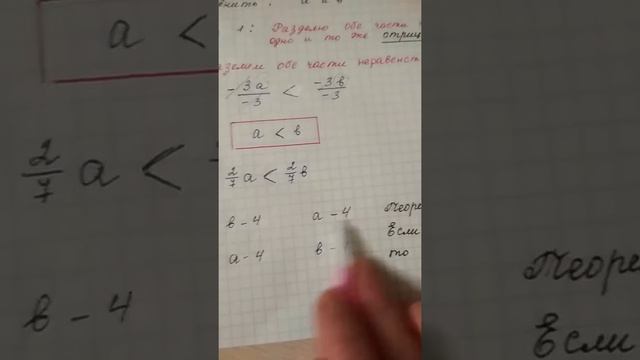 1: Разделю обе части
одно и то же отриц
зделим обе части неравенст
-3a/-3 < -3в/-3
a < в
2/7 a < 2/7 в
в - 4 a - 4 Теоре
a - 4 в - Если
то
a <
2/7 a <
в - 4
Теоре
Если